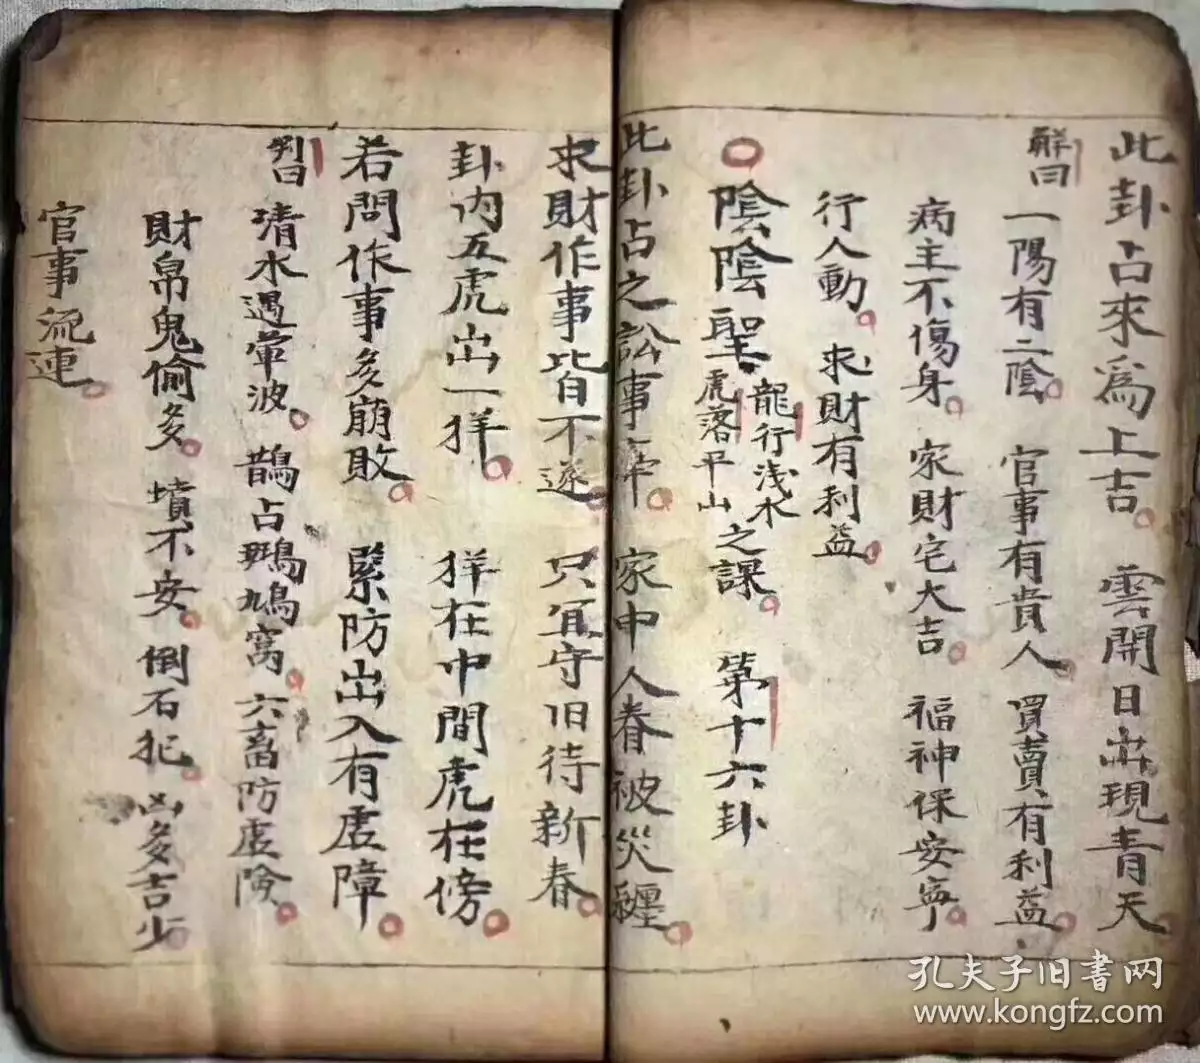 此卦占來為上吉。雲開日出現青天。
解曰 一陽有二陰。官事有貴人。買賣有利益。
病主不傷身。家財宅大吉。福神保安寧。
行人動。求財有利益。
陰陰聖 龍行浅水 虎落平山 之課。 第十六卦
此卦占之訟事牽。家中人眷被災纏。
求財作事皆不遂。只宜守旧待新春。
卦内五虎出一羊。羊在中間虎在傍。
若問作事多崩敗。緊防出入有虚障。
判曰 清水遇 波。鵲占鳩窩。六畜防虚險。
財帛鬼偷多。墳不安。倒石犯。凶多吉少。
官事流連。
孔夫子旧书网
www.kongfz.com